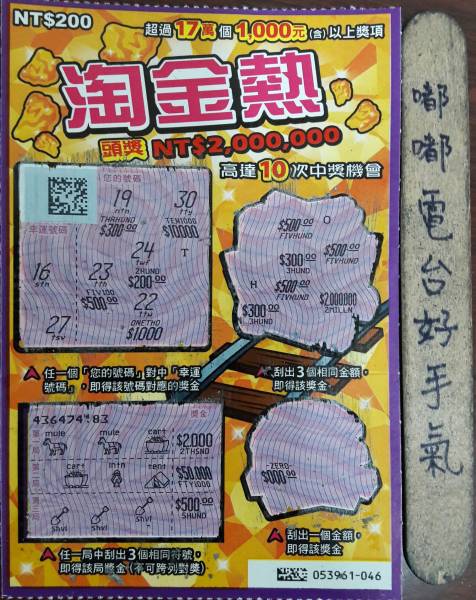 NT$200
超過17萬個1,000元(含)以上獎項
淘金熱
頭獎 NT$2,000,000
高達10次中獎機會
您的號碼
幸運號碼
19
ntn
THRHUND
$300.00
30
tty
TENTHOU
$10000
16
stn
23
tth
FIVHUND
$500.00
24
twf
2HUND
$200.00
T
27
tsv
22
tto
ONETHO
$1,000
任一個「您的號碼」對中「幸運
號碼」,即得該號碼對應的獎金
$500.00
FIVHUND
O
$300.00
3HUND
$500.00
FIVHUND
H
$500.00
FIVHUND
$300.00
3HUND
$2000000
2MILLN
刮出3個相同金額,
即得該獎金
436474 83
獎金
第一局
mule
mule
cart
$2,000
2THSND
第二局
cart
lntn
tent
$50,000
FTY1000
第三局
shvl
shvl
shvl
$500.00
5HUND
任一局中刮出3個相同符號,
即得該局獎金(不可跨列對獎)
-ZERO-
$000.00
刮出一個金額,
即得該獎金
053961-046
嘟嘟電台好手氣